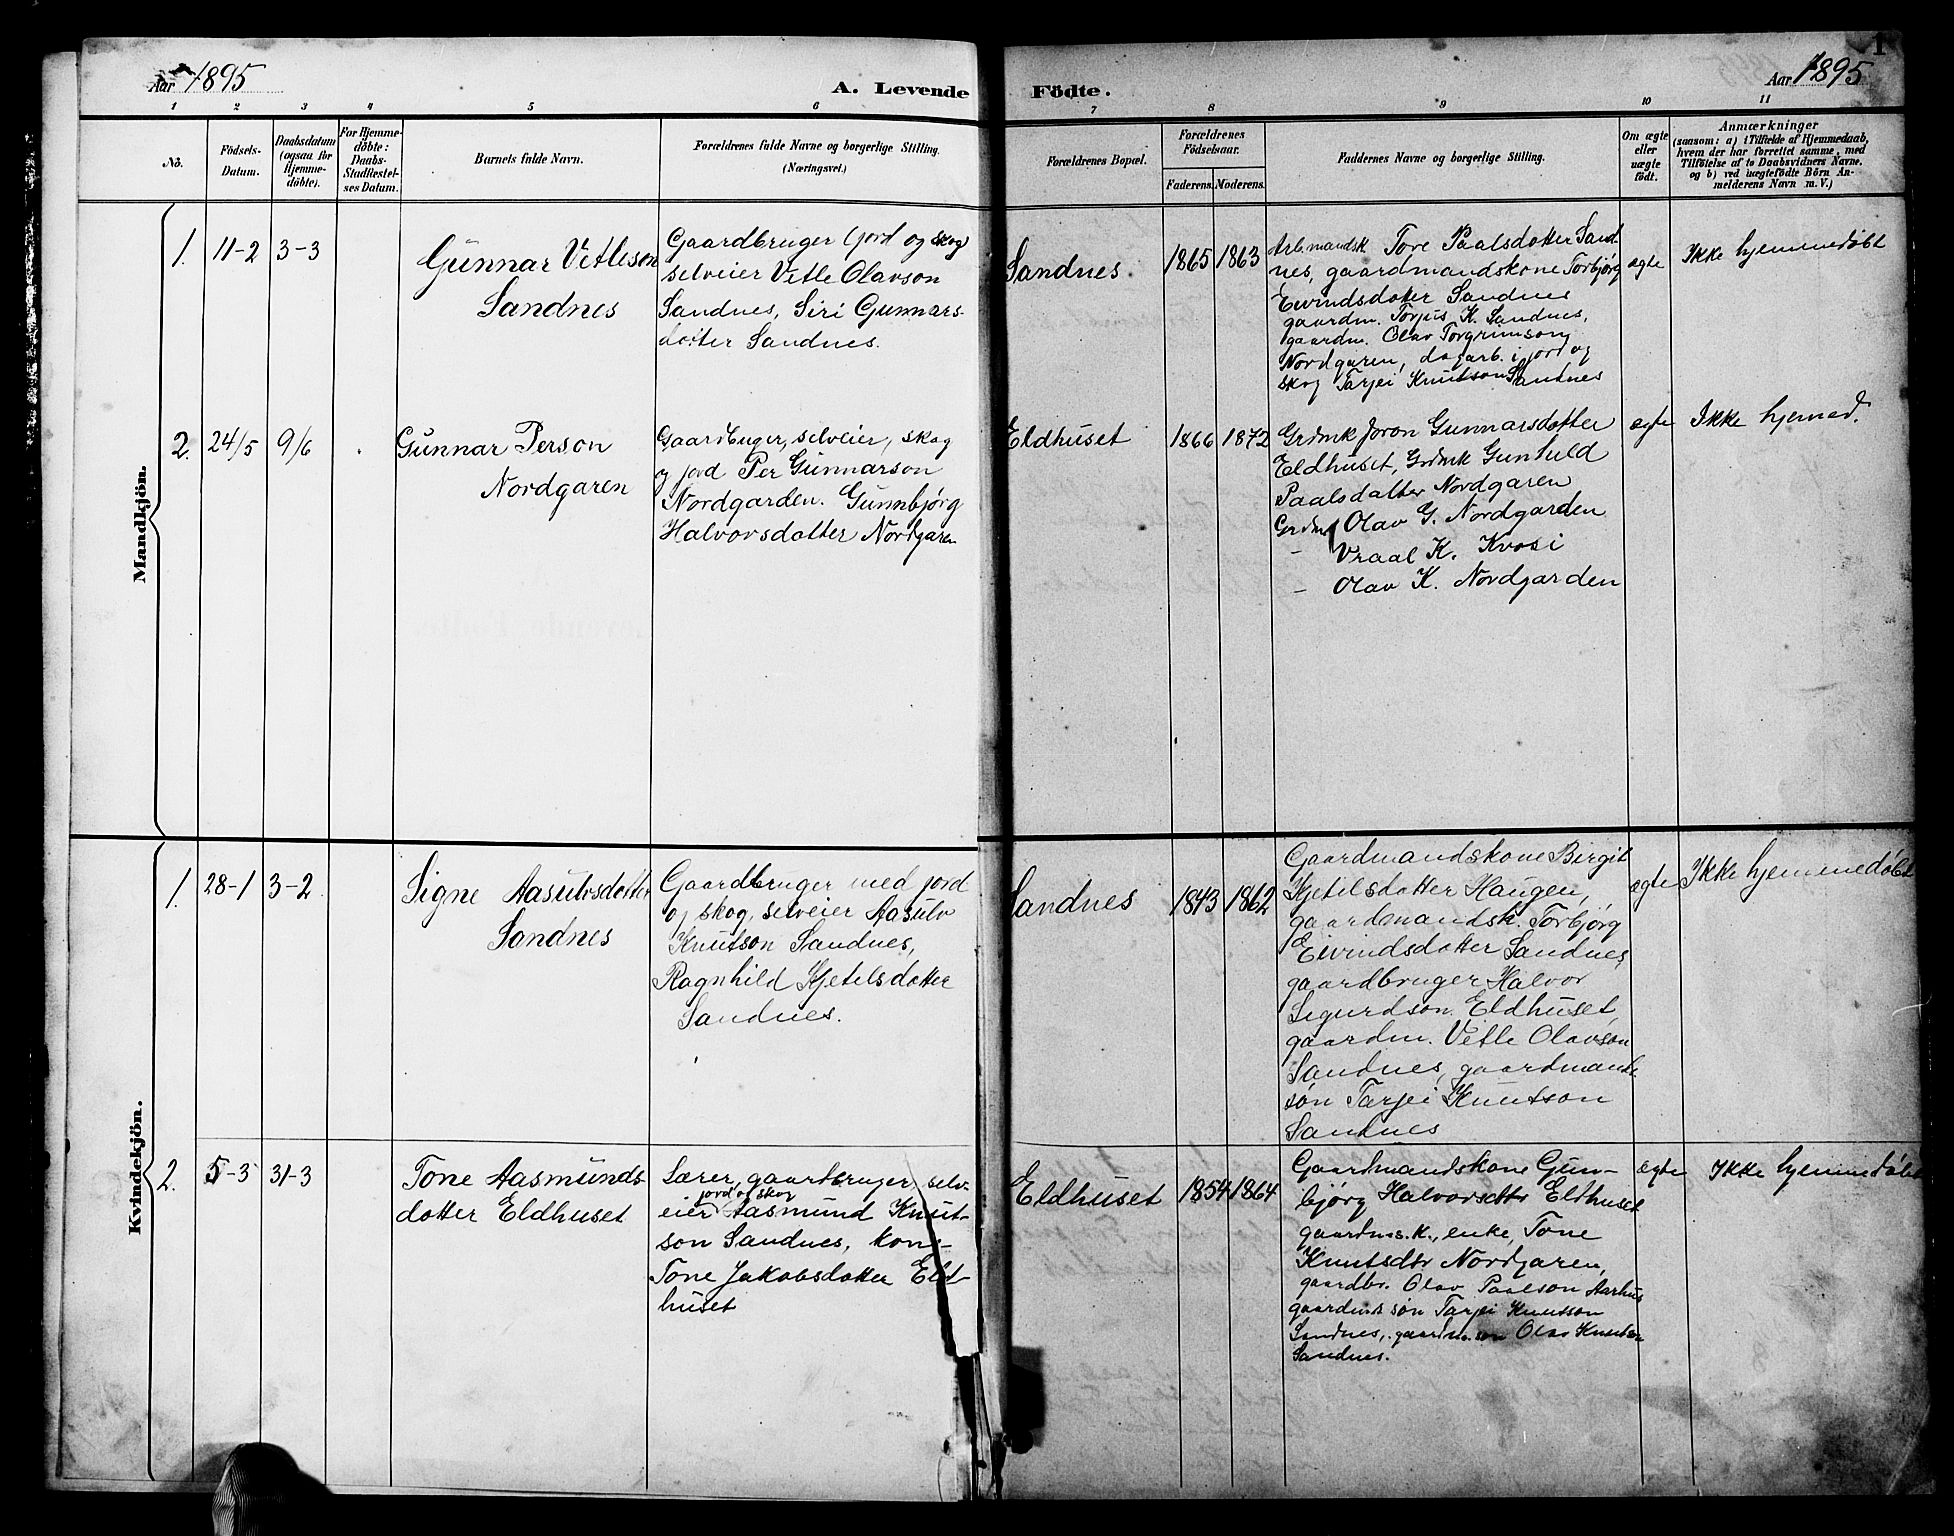 Aar 1895
A. Levende
Födte.
Aar 1895
1
1 2 3 4 5 6 7 8 9 10 11
No.
Födsels-
Datum.
Daabsdatum
(ogsaa for
Hjemme-
döbte).
For Hjemme-
döbte:
Daabs-
Stadfæstel-
ses Datum.
Barnets fulde Navn.
Forældrenes fulde Navne og borgerlige Stilling.
(Næringsvei.)
Forældrenes Bopæl.
Forældrenes
Födselsaar.
Faderens.
Moderens.
Faddernes Navne og borgerlige Stilling.
Om ægte
eller
uægte
födt.
Anmærkninger
(saasom: a) i Tilfælde af Hjemmedaab,
hvem der har forrettet samme, med
Tilföielse af to Daabsvidners Navne,
og b) ved uægtefödte Börn An-
melderens Navn m. V.)
Mandkjön.
1.
11-2
3-3
Gunnar Vetleson
Sandnes
Gaardbruger (jord og skog)
selveier Vetle Olavson
Sandnes, Siri Gunnars-
dotter Sandnes.
Sandnes.
1865
1863
Arb.mandsk Tore Paalsdotter Sand-
nes, gaardmandskone Torbjørg
Eivindsdotter Sandnes
gaardm. Torjus K. Sandnes,
gaardm. Olav Torgrimson
Nordgaren, dagarb. i jord og
skog Tarjei Knutson Sandnes
ægte
Ikke hjemmedøbt
2.
24/5
9/6
Gunnar Person
Nordgaren
Gaardbruger, selveier, skog
og jord Per Gunnarson
Nordgarden. Gunnbjørg
Halvorsdotter Nordgaren
Eldhuset
1866
1872
Grdmk Joron Gunnarsdotter
Eldhuset, Grdmk Gunhild
Paalsdatter Nordgaren
Grdm Olav G. Nordgarden
- Vraal K. Kvosi
- Olav K. Nordgarden
ægte
Ikke hjemed.
Kvindekjön.
1.
28-1
3-2
Signe Aasulvsdotter
Sandnes
Gaardbruger med jord
og skog, selveier Aasulv
Knutson Sandnes,
Ragnhild Kjetilsdotter
Sandnes.
Sandnes
1843
1862
Gaardmandskone Birgit
Kjetilsdotter Haugen,
gaardmandsk. Torbjørg
Eivindsdotter Sandnes,
gaardbruger Halvor
Sigurdson Eldhuset,
gaardm. Vetle Olavson
Sandnes, gaardmands-
søn Tarjei Knutson
Sandnes
ægte
Ikke hjemmedøbt
2.
5-3
31-3
Tone Aasmunds-
dotter Eldhuset
Lærer, gaardbruger, selv-
jord og skog
eier Aasmund Knut-
son Sandnes, kone
Tone Jakobsdotter Eld-
huset
Eldhuset
1854
1864
Gaardmandskone Gun-
bjørg Halvorsdtr Eldhuset
gaardms.k., enke, Tone
Knutsdtr Nordgaren,
gaardbr. Olav Paalson Aarhus
gaardmds søn Tarjei Knutson
Sandnes, gaardm. søn Olav Knutson
Sandnes.
ægte
Ikke hjemmedøbt